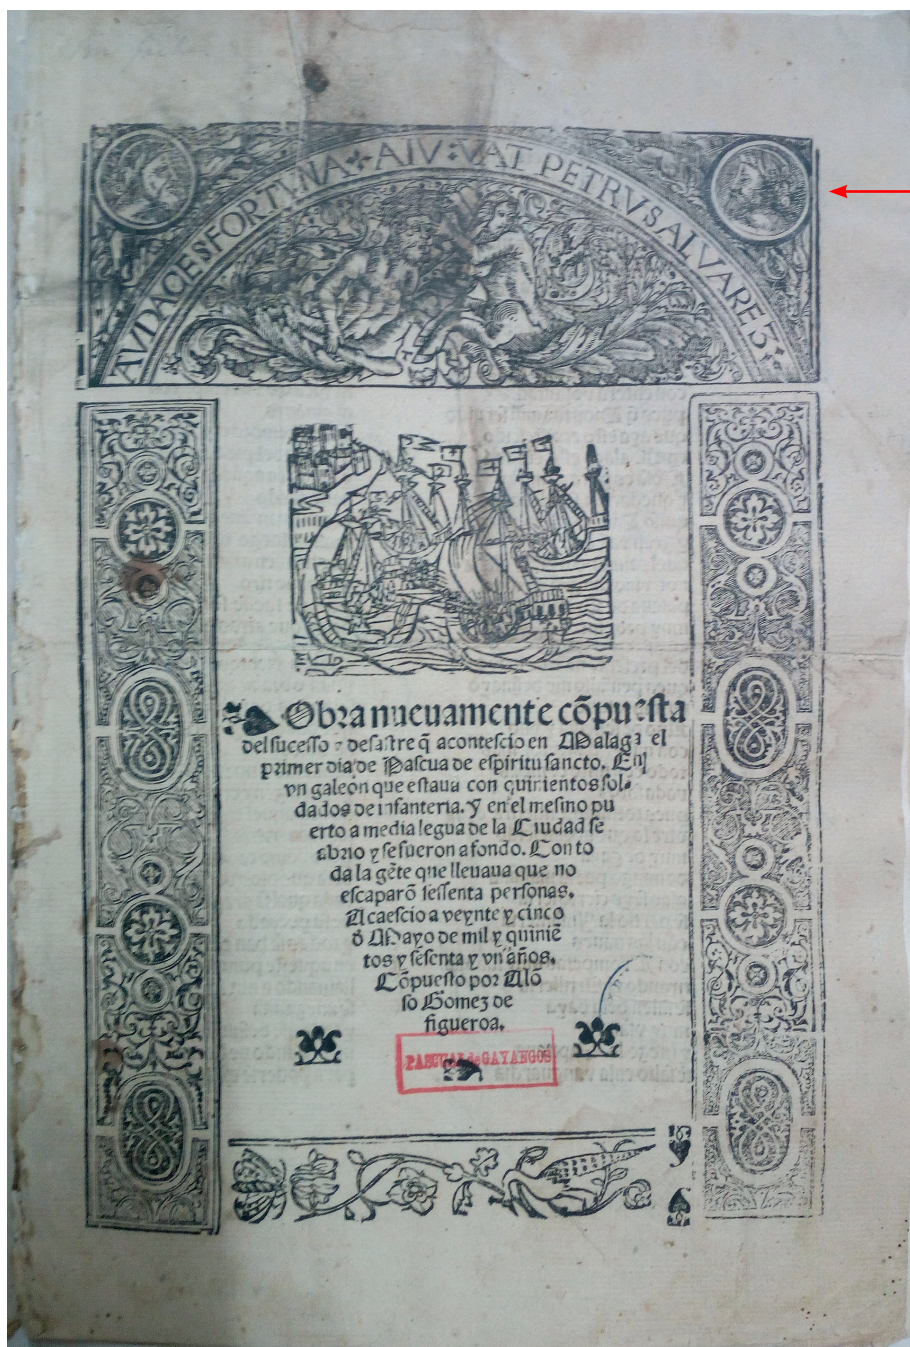 AVDACES FORTVNA AIVVAT PETRVS ALVAREZ
Obra nueuamente cõpuesta
del sucesso ⁊ desastre q̃ acontescio en Malaga el
primer dia de Pascua de espiritu sancto. En
vn galeon que estaua con quinientos sol-
dados de infanteria. Y en el mesmo pu
erto a media legua de la Ciudad se
abrio y se fueron a fondo. Con to
da la gẽte que lleuaua que no
escaparõ sessenta personas.
Acaescio a veynte y cinco
d̃ Mayo de mil y quiniẽ
tos y sesenta y vn años.
Cõpuesto por Alõ
so Gomez de
figueroa.
PASCUAL de GAYANGOS